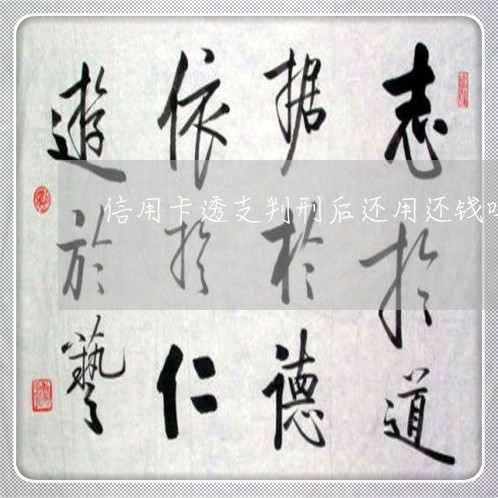 志於道
据於德
依於仁
遊於藝
信用卡透支判刑后还用还钱